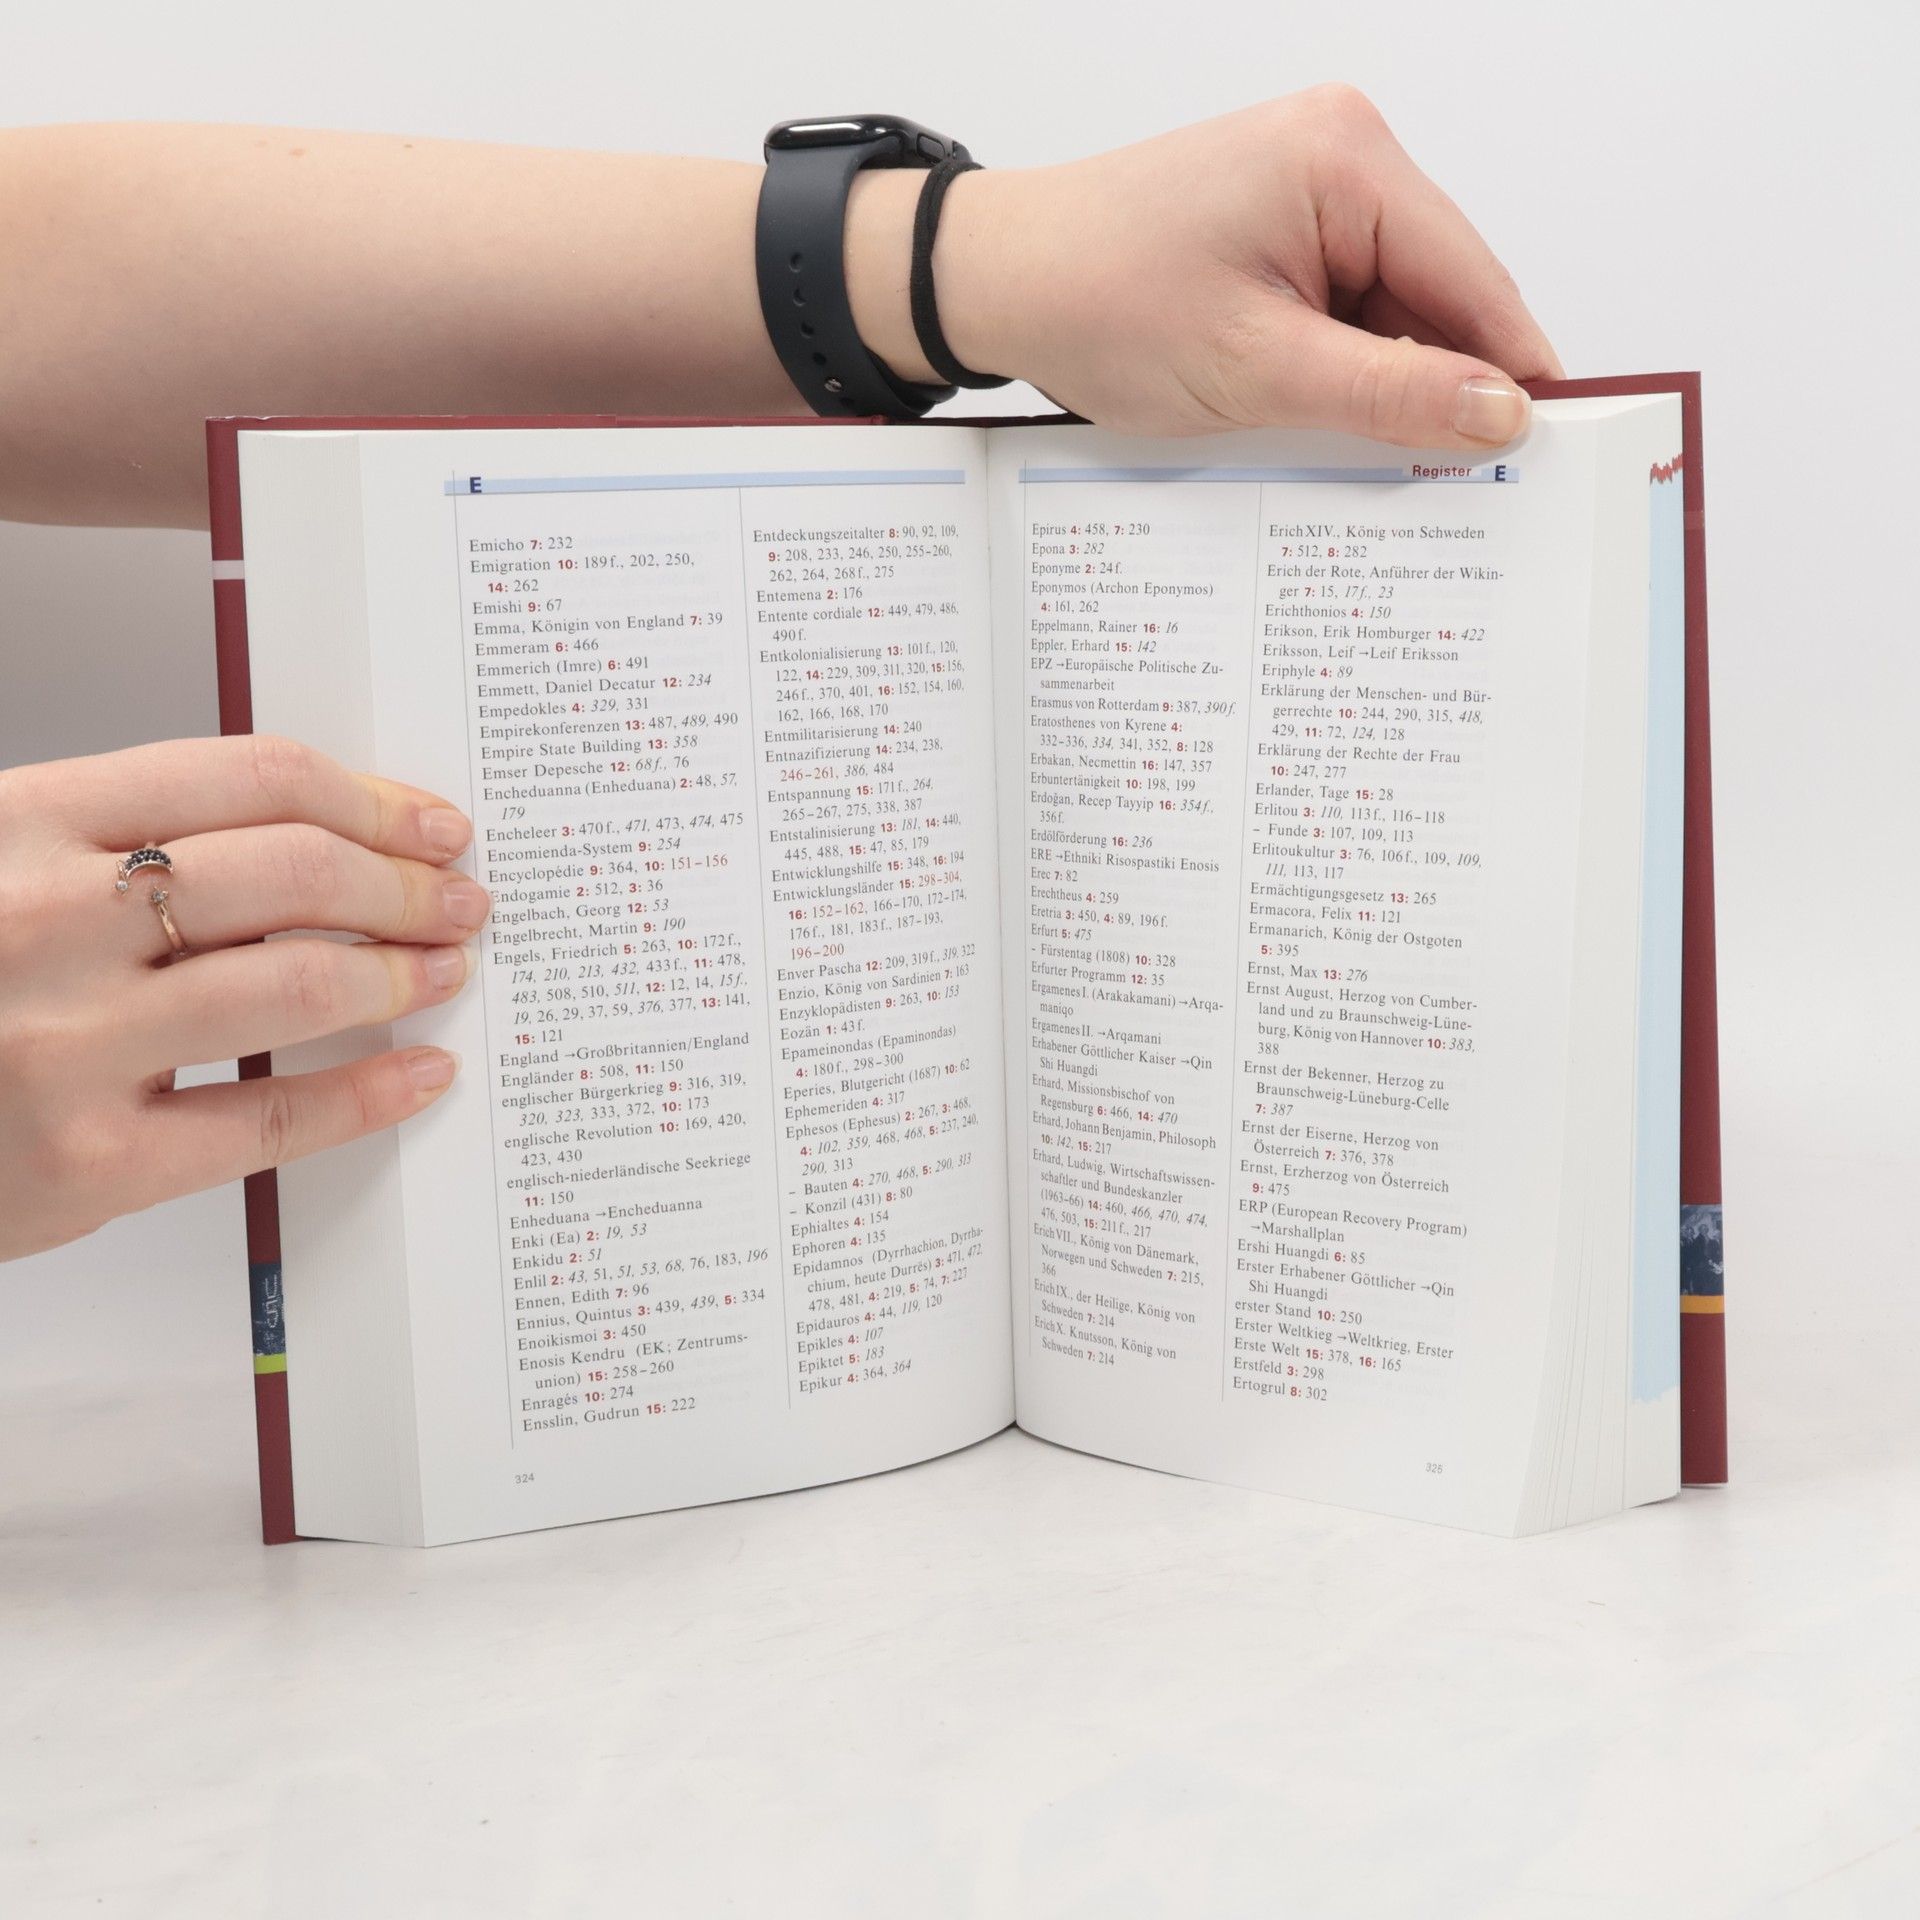 E
Emicho 7: 232
Emigration 10: 189 f., 202, 250,
14: 262
Emishi 9: 67
Emma, Königin von England 7: 39
Emmeram 6: 466
Emmerich (Imre) 6: 491
Emmett, Daniel Decatur 12: 234
Empedokles 4: 329, 331
Empirekonferenzen 13: 487, 489, 490
Empire State Building 13: 358
Emser Depesche 12: 68 f., 76
Encheduanna (Enheduana) 2: 48, 57,
179
Encheleer 3: 470 f., 471, 473, 474, 475
Encomienda-System 9: 254
Encyclopédie 9: 364, 10: 151–156
Endogamie 2: 512, 3: 36
Engelbach, Georg 12: 53
Engelbrecht, Martin 9: 190
Engels, Friedrich 5: 263, 10: 172 f.,
174, 210, 213, 432, 433 f., 11: 478,
483, 508, 510, 511, 12: 12, 14, 15 f.,
19, 26, 29, 37, 59, 376, 377, 13: 141,
15: 121
England →Großbritannien/England
Engländer 8: 508, 11: 150
englischer Bürgerkrieg 9: 316, 319,
320, 323, 333, 372, 10: 173
englische Revolution 10: 169, 420,
423, 430
englisch-niederländische Seekriege
11: 150
Enheduana →Encheduanna
Enki (Ea) 2: 19, 53
Enkidu 2: 51
Enlil 2: 43, 51, 51, 53, 68, 76, 183, 196
Ennen, Edith 7: 96
Ennius, Quintus 3: 439, 439, 5: 334
Enoikismoi 3: 450
Enosis Kendru (EK; Zentrums-
union) 15: 258–260
Enragés 10: 274
Ensslin, Gudrun 15: 222
Entdeckungszeitalter 8: 90, 92, 109,
9: 208, 233, 246, 250, 255–260,
262, 264, 268 f., 275
Entemena 2: 176
Entente cordiale 12: 449, 479, 486,
490 f.
Entkolonialisierung 13: 101 f., 120,
122, 14: 229, 309, 311, 320, 15: 156,
246 f., 370, 401, 16: 152, 154, 160,
162, 166, 168, 170
Entmilitarisierung 14: 240
Entnazifizierung 14: 234, 238,
246–261, 386, 484
Entspannung 15: 171 f., 264,
265–267, 275, 338, 387
Entstalinisierung 13: 181, 14: 440,
445, 488, 15: 47, 85, 179
Entwicklungshilfe 15: 348, 16: 194
Entwicklungsländer 15: 298–304,
16: 152–162, 166–170, 172–174,
176 f., 181, 183 f., 187–193,
196–200
Enver Pascha 12: 209, 319 f., 319, 322
Enzio, König von Sardinien 7: 163
Enzyklopädisten 9: 263, 10: 153
Eozän 1: 43 f.
Epameinondas (Epaminondas)
4: 180 f., 298–300
Eperies, Blutgericht (1687) 10: 62
Ephemeriden 4: 317
Ephesos (Ephesus) 2: 267, 3: 468,
4: 102, 359, 468, 468, 5: 237, 240,
290, 313
– Bauten 4: 270, 468, 5: 290, 313
– Konzil (431) 8: 80
Ephialtes 4: 154
Ephoren 4: 135
Epidamnos (Dyrrhachion, Dyrrha-
chium, heute Durrës) 3: 471, 472,
478, 481, 4: 219, 5: 74, 7: 227
Epidauros 4: 44, 119, 120
Epikles 4: 107
Epiktet 5: 183
Epikur 4: 364, 364
324
Register E
Epirus 4: 458, 7: 230
Epona 3: 282
Eponyme 2: 24 f.
Eponymos (Archon Eponymos)
4: 161, 262
Eppelmann, Rainer 16: 16
Eppler, Erhard 15: 142
EPZ →Europäische Politische Zu-
sammenarbeit
Erasmus von Rotterdam 9: 387, 390 f.
Eratosthenes von Kyrene 4:
332–336, 334, 341, 352, 8: 128
Erbakan, Necmettin 16: 147, 357
Erbuntertänigkeit 10: 198, 199
Erdoğan, Recep Tayyip 16: 354 f.,
356 f.
Erdölförderung 16: 236
ERE →Ethniki Risospastiki Enosis
Erec 7: 82
Erechtheus 4: 259
Eretria 3: 450, 4: 89, 196 f.
Erfurt 5: 475
– Fürstentag (1808) 10: 328
Erfurter Programm 12: 35
Ergamenes I. (Arakakamani) →Arqa-
maniqo
Ergamenes II. →Arqamani
Erhabener Göttlicher Kaiser →Qin
Shi Huangdi
Erhard, Missionsbischof von
Regensburg 6: 466, 14: 470
Erhard, Johann Benjamin, Philosoph
10: 142, 15: 217
Erhard, Ludwig, Wirtschaftswissen-
schaftler und Bundeskanzler
(1963–66) 14: 460, 466, 470, 474,
476, 503, 15: 211 f., 217
Erich VII., König von Dänemark,
Norwegen und Schweden 7: 215,
366
Erich IX., der Heilige, König von
Schweden 7: 214
Erich X. Knutsson, König von
Schweden 7: 214
Erich XIV., König von Schweden
7: 512, 8: 282
Erich der Rote, Anführer der Wikin-
ger 7: 15, 17 f., 23
Erichthonios 4: 150
Erikson, Erik Homburger 14: 422
Eriksson, Leif →Leif Eriksson
Eriphyle 4: 89
Erklärung der Menschen- und Bür-
gerrechte 10: 244, 290, 315, 418,
429, 11: 72, 124, 128
Erklärung der Rechte der Frau
10: 247, 277
Erlander, Tage 15: 28
Erlitou 3: 110, 113 f., 116–118
– Funde 3: 107, 109, 113
Erlitoukultur 3: 76, 106 f., 109, 109,
111, 113, 117
Ermächtigungsgesetz 13: 265
Ermacora, Felix 11: 121
Ermanarich, König der Ostgoten
5: 395
Ernst, Max 13: 276
Ernst August, Herzog von Cumber-
land und zu Braunschweig-Lüne-
burg, König von Hannover 10: 383,
388
Ernst der Bekenner, Herzog zu
Braunschweig-Lüneburg-Celle
7: 387
Ernst der Eiserne, Herzog von
Österreich 7: 376, 378
Ernst, Erzherzog von Österreich
9: 475
ERP (European Recovery Program)
→Marshallplan
Ershi Huangdi 6: 85
Erster Erhabener Göttlicher →Qin
Shi Huangdi
erster Stand 10: 250
Erster Weltkieg →Weltkrieg, Erster
Erste Welt 15: 378, 16: 165
Erstfeld 3: 298
Ertogrul 8: 302
325